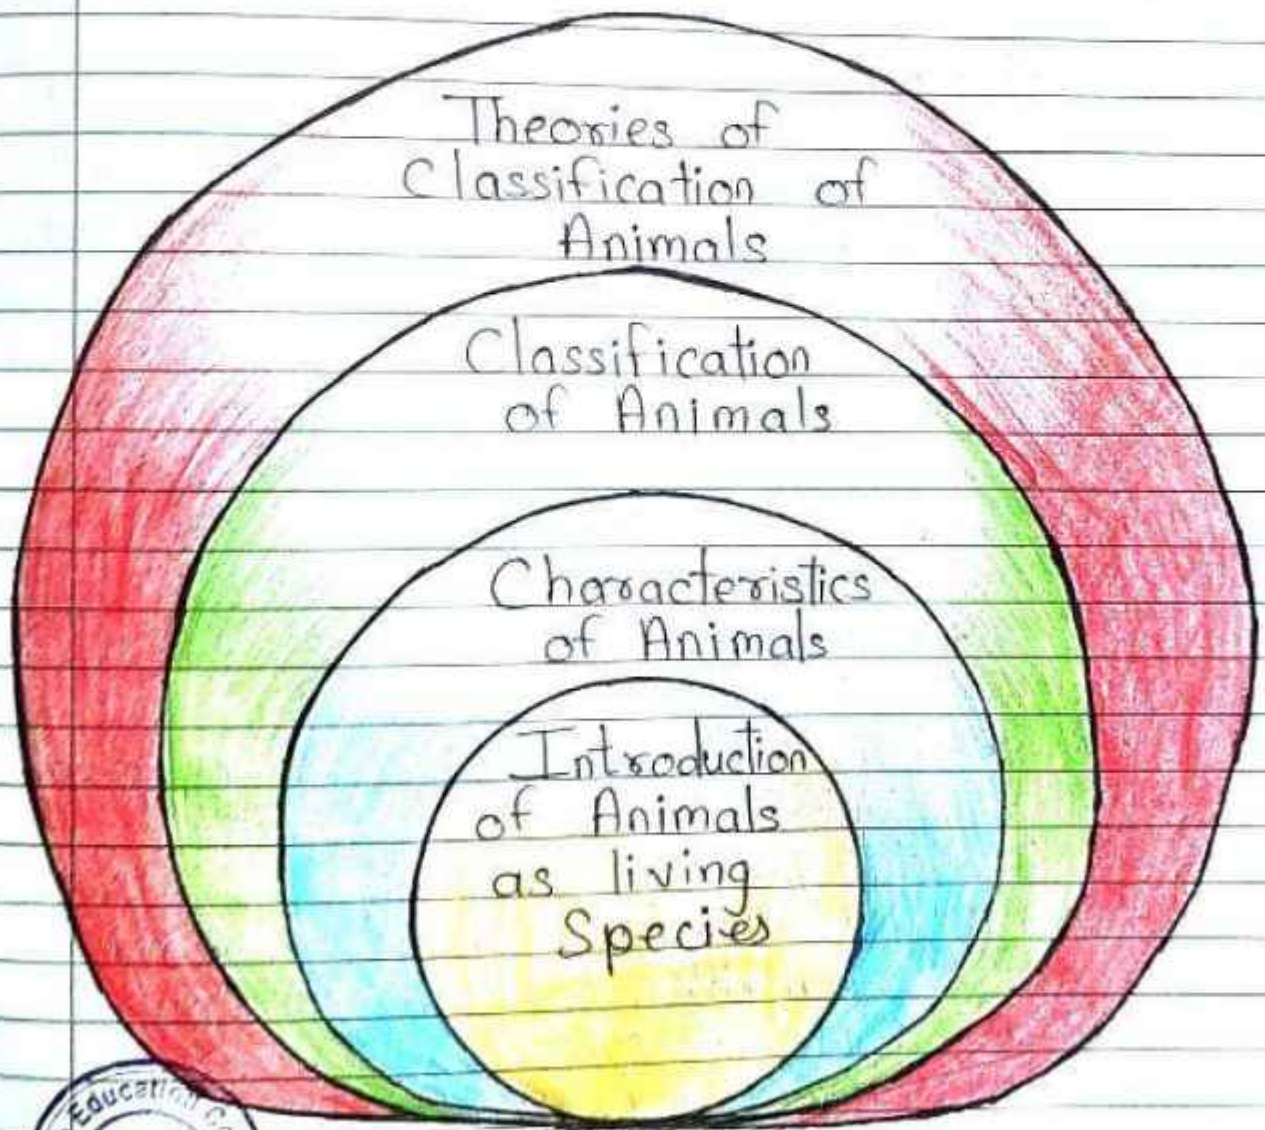 Theories of
Classification of
Animals
Classification
of Animals
Characteristics
of Animals
Introduction
of Animals
as living
Species
Education